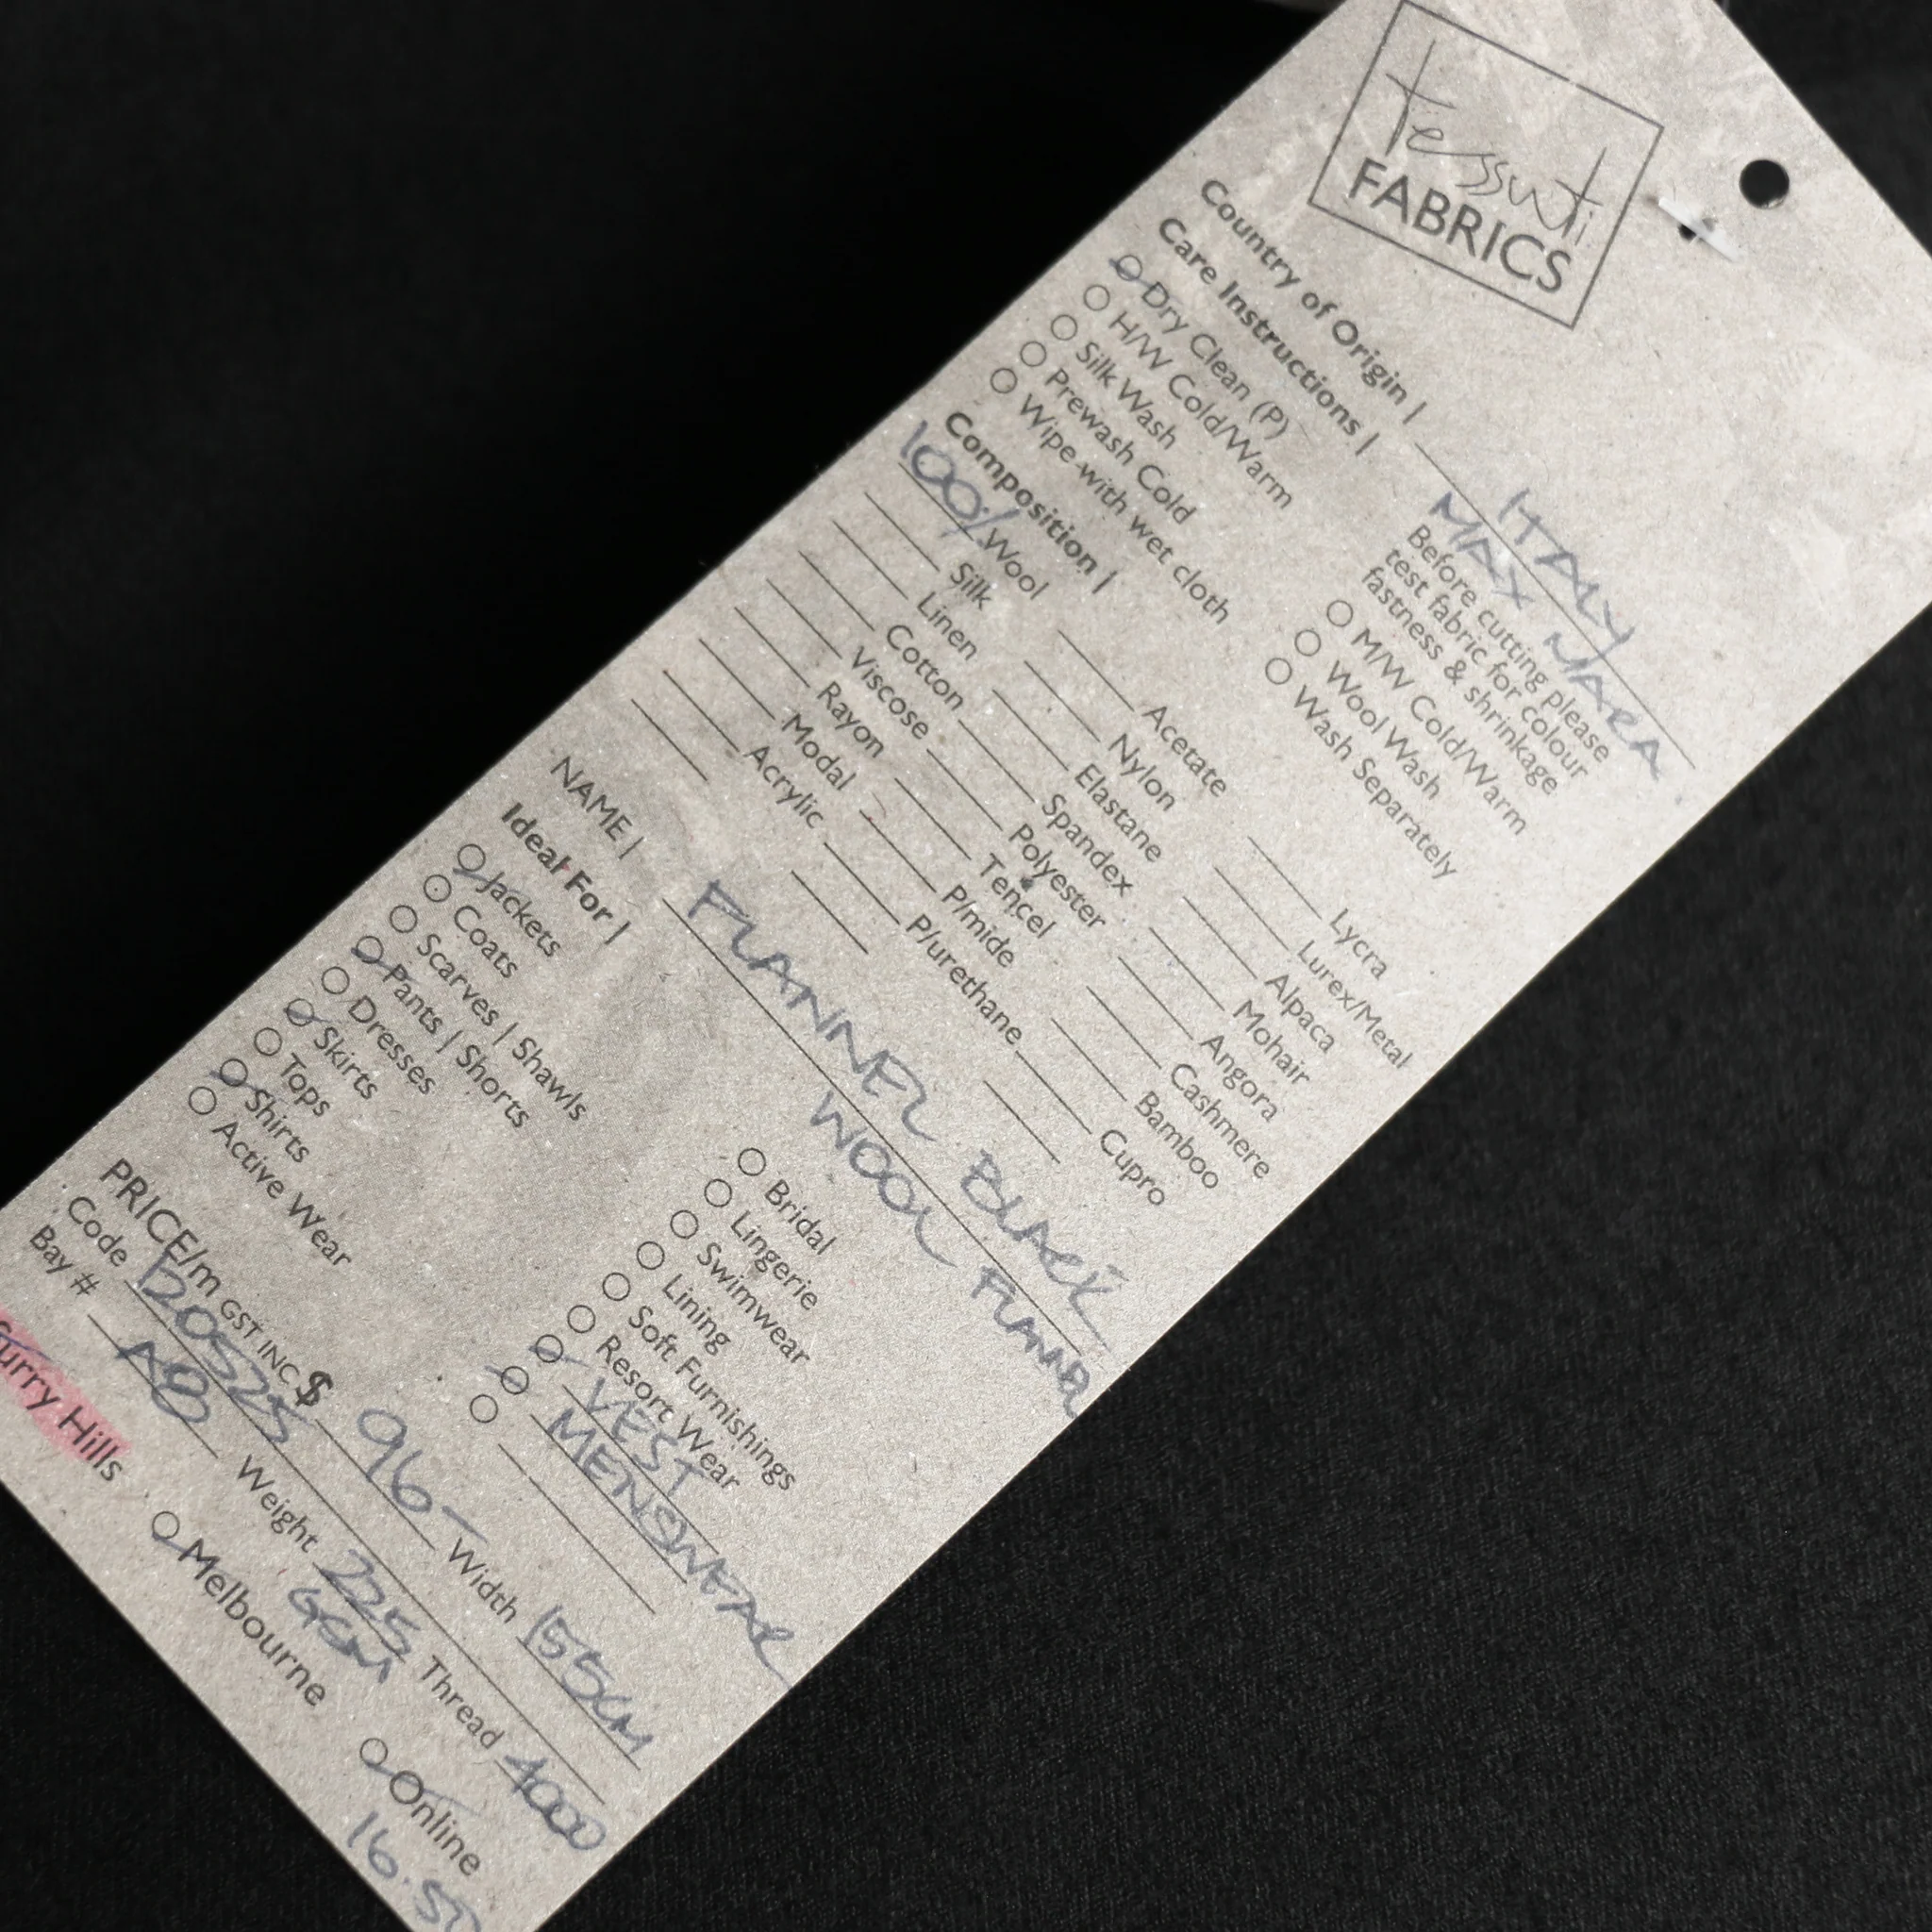 tessuti
FABRICS
Country of Origin | ITALY
MAX MARA
Care Instructions |
Before cutting please
test fabric for colour
fastness & shrinkage
Dry Clean (P)
H/W Cold/Warm
Silk Wash
Prewash Cold
Wipe with wet cloth
M/W Cold/Warm
Wool Wash
Wash Separately
Composition |
100% Wool
Silk
Linen
Cotton
Viscose
Rayon
Modal
Acrylic
Acetate
Nylon
Elastane
Spandex
Polyester
Tencel
P/mide
P/urethane
Lycra
Lurex/Metal
Alpaca
Mohair
Angora
Cashmere
Bamboo
Cupro
NAME | FLANNEL BLACK
WOOL FLANNEL
Ideal For |
Jackets
Coats
Scarves | Shawls
Pants | Shorts
Dresses
Skirts
Tops
Shirts
Active Wear
Bridal
Lingerie
Swimwear
Lining
Soft Furnishings
Resort Wear
VEST
MENSWEAR
PRICE/m GST INC $ 96- Width 155cm
Code 120525 Weight 225 GSM Thread 4000
Bay # A8
urry Hills
Melbourne
Online